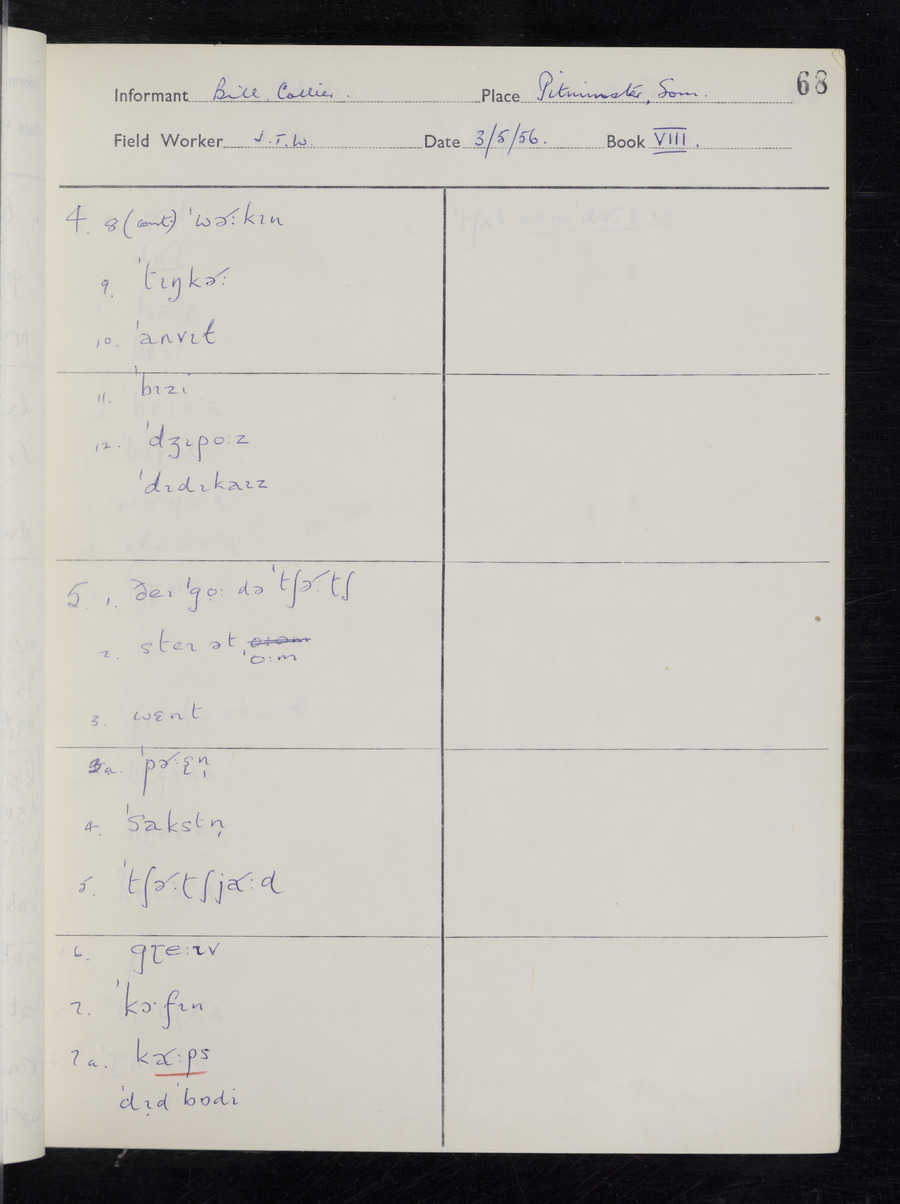 68
Informant Bill Collier. Place Pitminster, Som.
Field Worker J.T.W. Date 3/5/56. Book VIII.
4. 8 (cont) ˈwɚːkɪn
9. ˈtɪŋkɚː
10. ˈanvɪt
11. ˈbɪzi
12. ˈdʒɪpoːz
ˈdɪdɪkaɪz
5. 1. ðeɪ ˈgo̩ː də ˈtʃɚːtʃ
2. steɪ ət
ˈoːm
3. wɛnt
3a. ˈpɚːɛ̩n̩
4. ˈsakstn̩
5. ˈtʃɚːtʃjɑ˞ːd
6. gɽeːɪv
7. ˈkɔˑfɪn
7a. kɑ˞ːps
ˈdɪ̩d ˈbɒdi